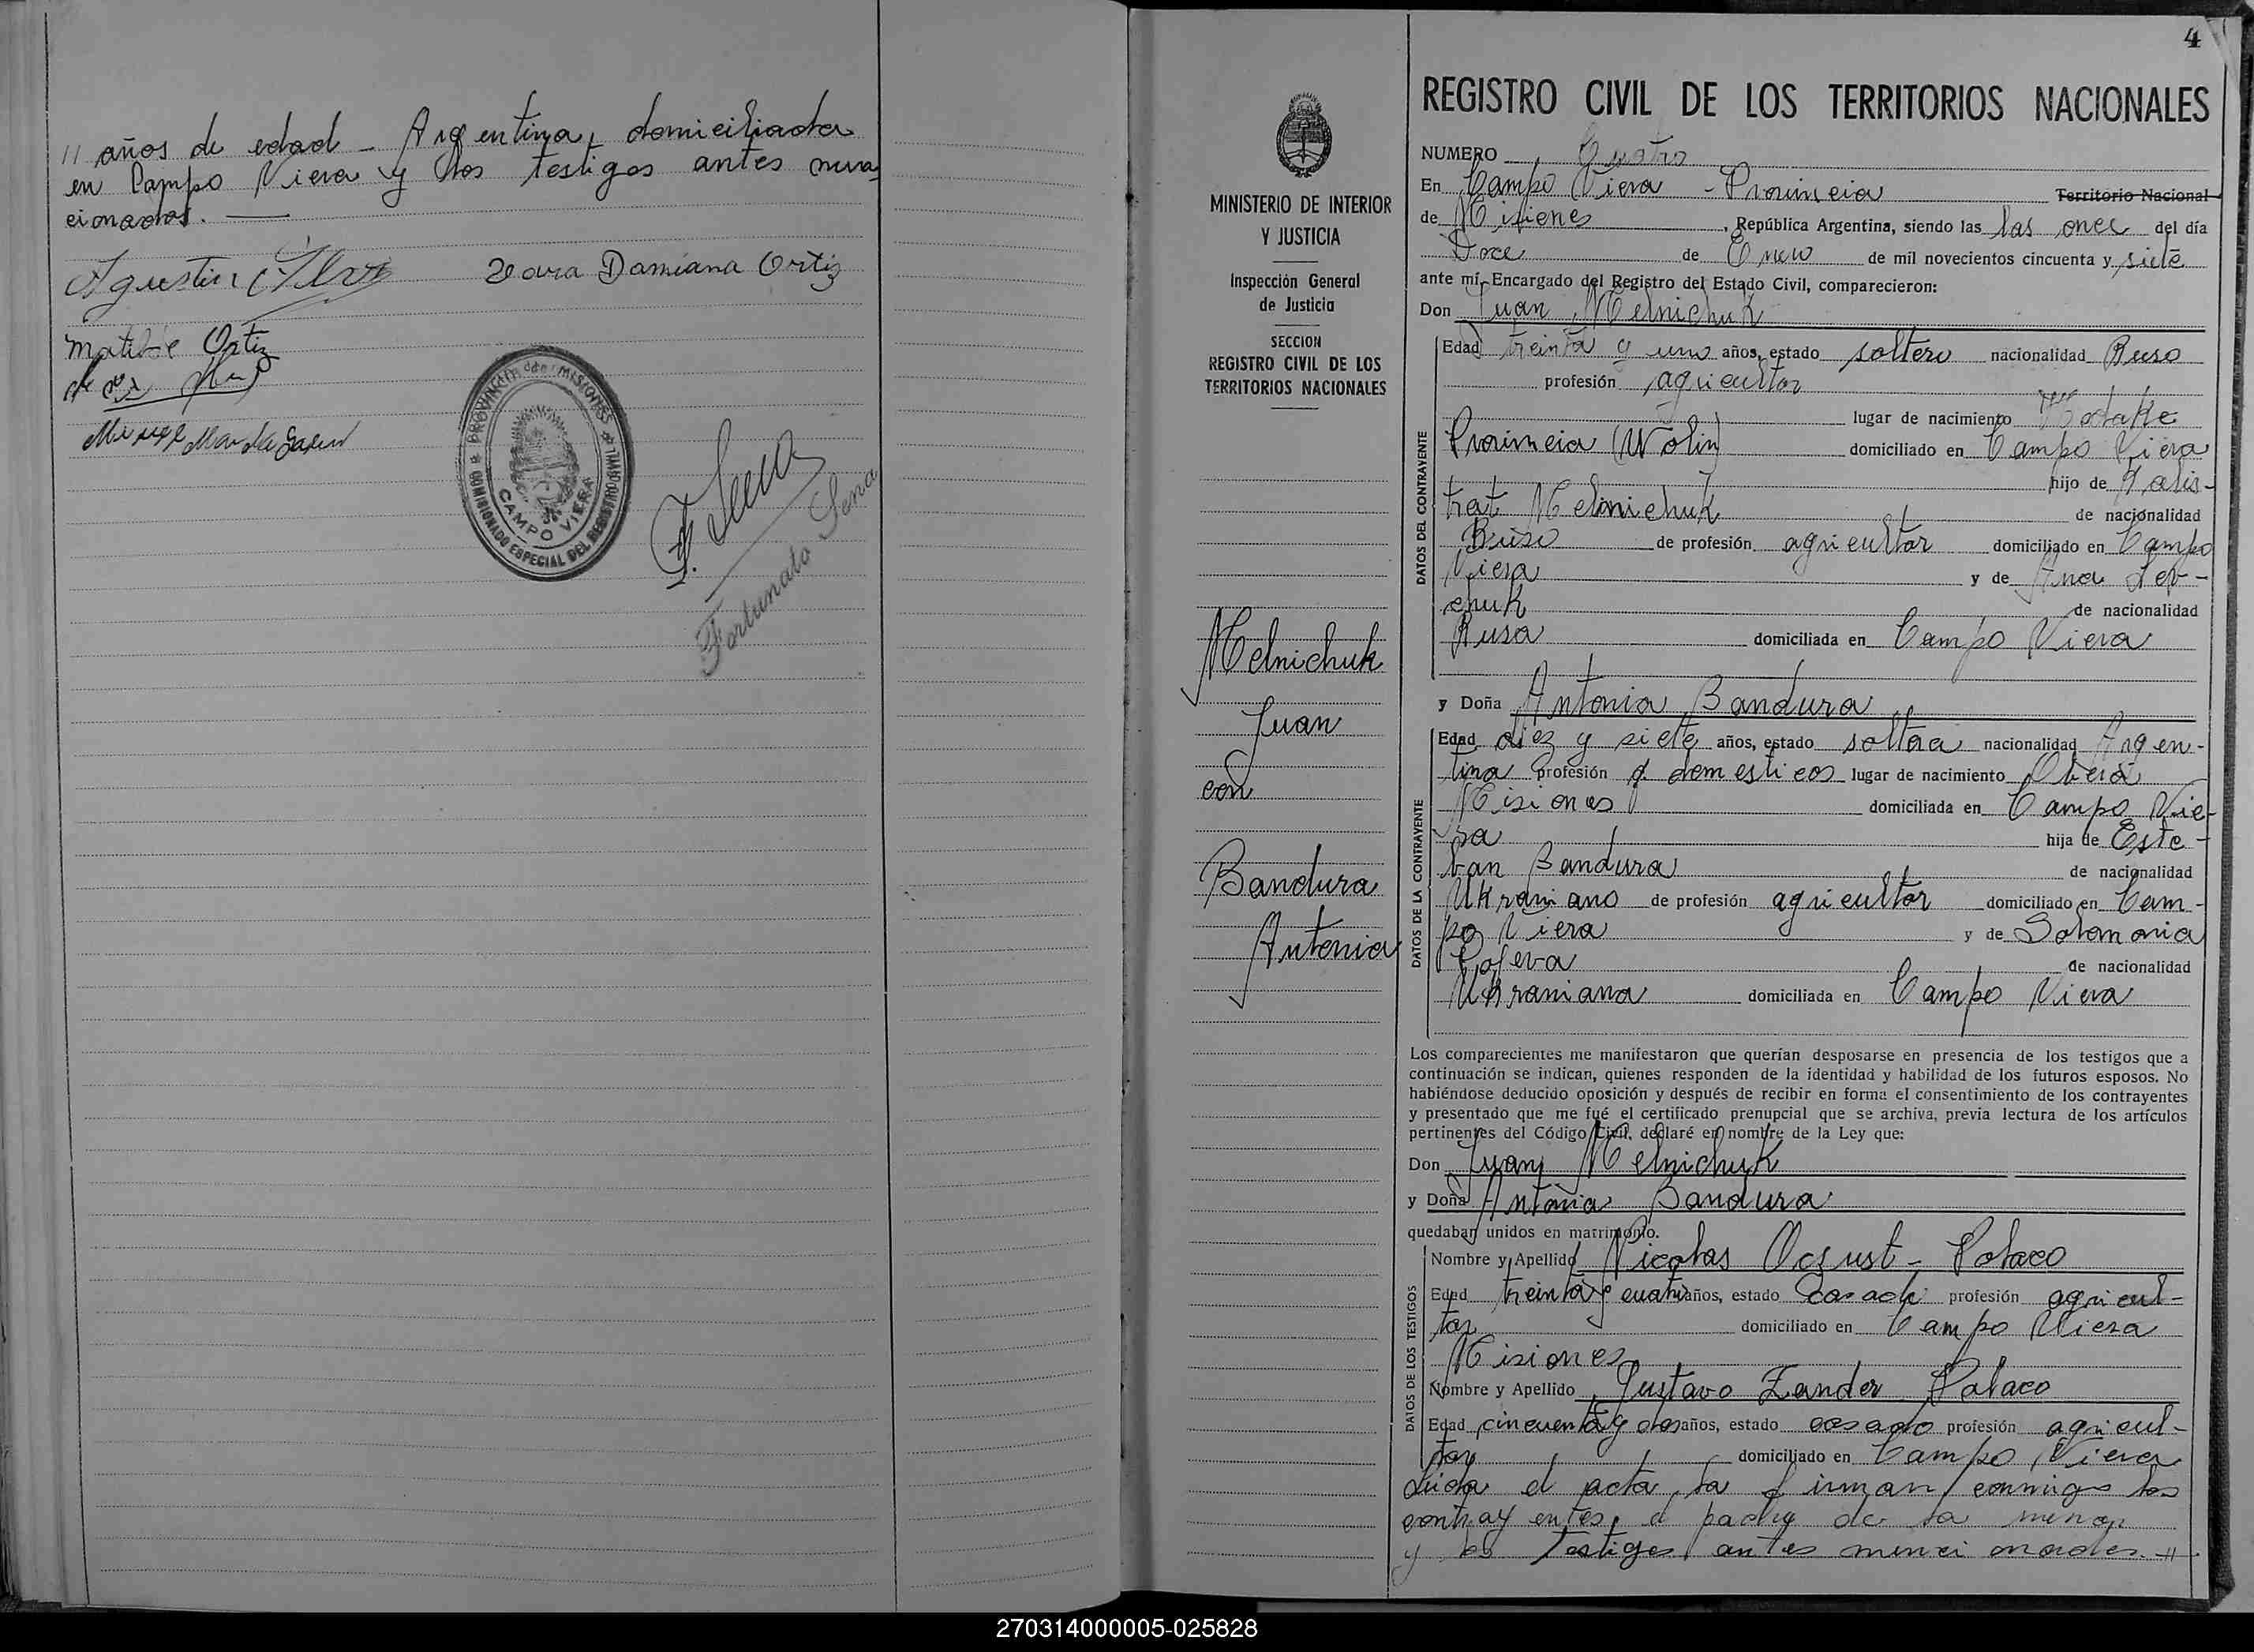 11 años de edad - Argentina, domiciliada
en Campo Viera y los testigos antes mencionados. —
Zara Damiana Ortiz
Matilde Ortiz
PROVINCIA de MISIONES
COMISIONADO ESPECIAL DEL REGISTRO CIVIL
CAMPO VIERA
Fortunato Sena
MINISTERIO DE INTERIOR
Y JUSTICIA
Inspección General
de Justicia
SECCION
REGISTRO CIVIL DE LOS
TERRITORIOS NACIONALES
Melnichuk
Juan
con
Bandura
Antonia
4
REGISTRO CIVIL DE LOS TERRITORIOS NACIONALES
NUMERO Cuatro
En Campo Viera - Provincia Territorio Nacional
de Misiones, República Argentina, siendo las las once del día
Doce de Enero de mil novecientos cincuenta y siete
ante mí, Encargado del Registro del Estado Civil, comparecieron:
Don Juan Melnichuk
DATOS DEL CONTRAYENTE
Edad treinta y uno años, estado soltero nacionalidad Ruso
profesión agricultor
lugar de nacimiento
Provincia (Wolin) domiciliado en Campo Viera
hijo de Kalis-
trat Melnichuk de nacionalidad
Ruso de profesión agricultor domiciliado en Campo
Viera y de Ana Lev-
chuk de nacionalidad
Rusa domiciliada en Campo Viera
y Doña Antonia Bandura
DATOS DE LA CONTRAYENTE
Edad diez y siete años, estado soltera nacionalidad Argen-
tina profesión q domesticos lugar de nacimiento Oberá
Misiones domiciliada en Campo Vie-
ra hija de Este-
ban Bandura de nacionalidad
Ukraniano de profesión agricultor domiciliado en Cam-
po Viera y de Solomonia
de nacionalidad
Ukraniana domiciliada en Campo Viera
Los comparecientes me manifestaron que querían desposarse en presencia de los testigos que a
continuación se indican, quienes responden de la identidad y habilidad de los futuros esposos. No
habiéndose deducido oposición y después de recibir en forma el consentimiento de los contrayentes
y presentado que me fué el certificado prenupcial que se archiva, previa lectura de los artículos
pertinentes del Código Civil, declaré en nombre de la Ley que:
Don Juan Melnichuk
y Doña Antonia Bandura
quedaban unidos en matrimonio.
DATOS DE LOS TESTIGOS
Nombre y Apellido Nicolas Ogust - Polaco
Edad treinta y cuatro años, estado Casado profesión agricul-
tor domiciliado en Campo Viera
Misiones
Nombre y Apellido Gustavo Zander Polaco
Edad cincuenta y dos años, estado casado profesión agricul-
tor domiciliado en Campo Viera
Leida el acta, la firman conmigo los
contrayentes, el padre de la menor
y los testigos antes mencionados. - 11
270314000005-025828